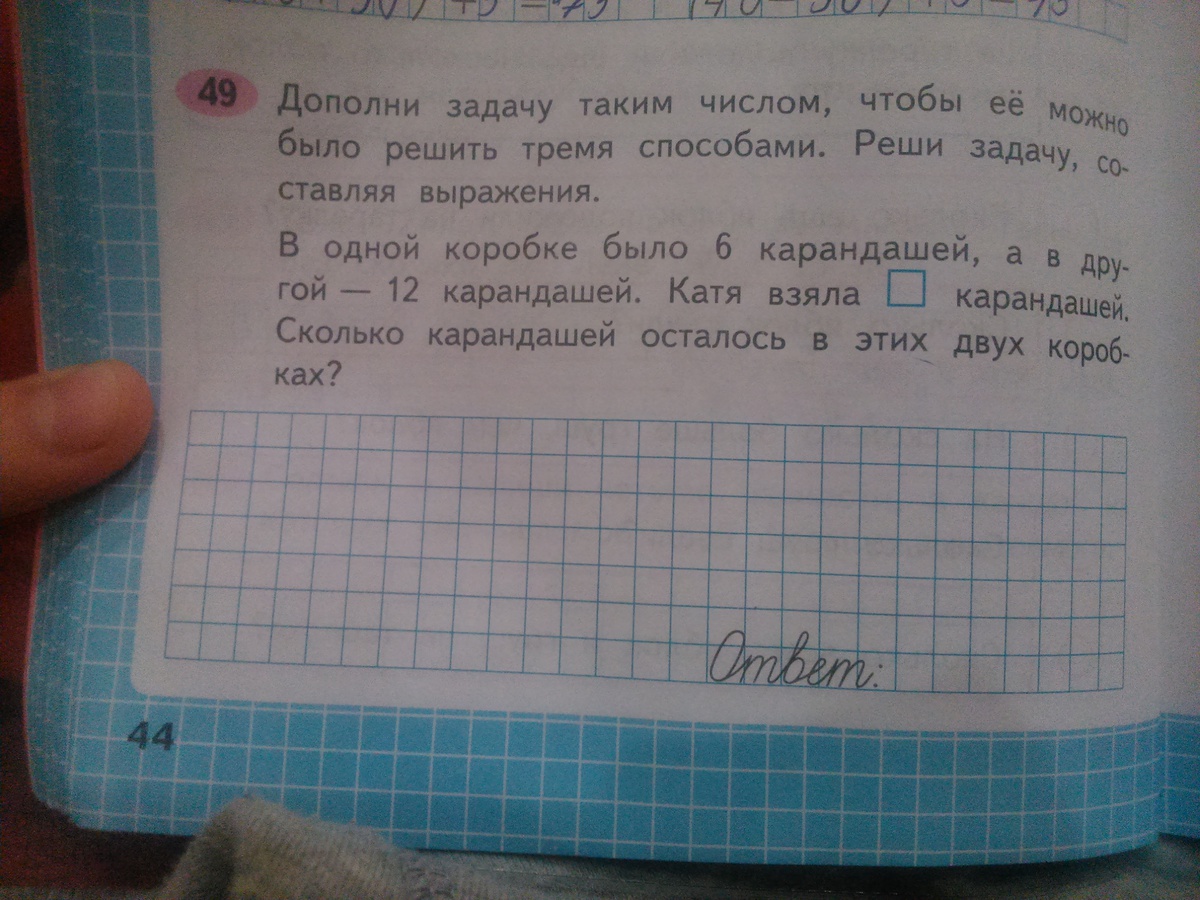 49 Дополни задачу таким числом, чтобы её можно
было решить тремя способами. Реши задачу, со-
ставляя выражения.
В одной коробке было 6 карандашей, а в дру-
гой — 12 карандашей. Катя взяла карандашей.
Сколько карандашей осталось в этих двух короб-
ках?
Ответ:
44